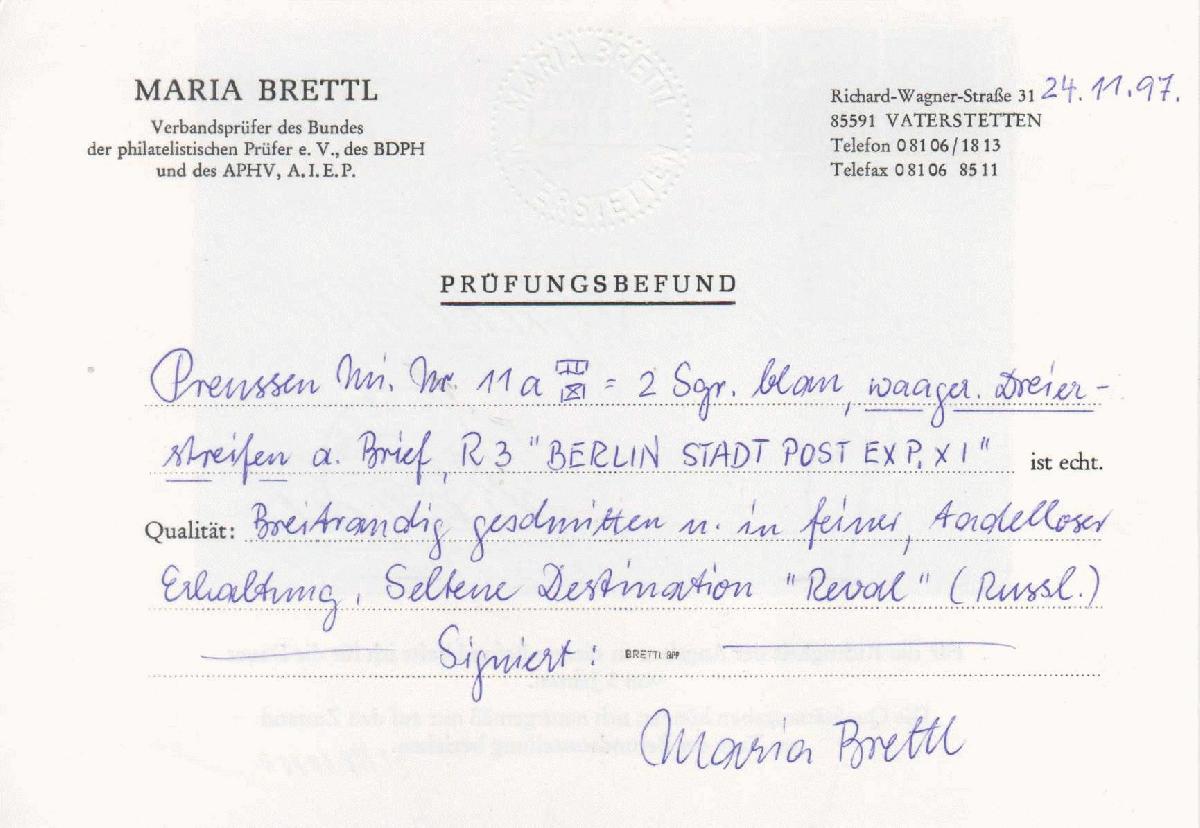 MARIA BRETTL
VATERSTETTEN
MARIA BRETTL
Verbandsprüfer des Bundes
der philatelistischen Prüfer e. V., des BDPH
und des APHV, A.I.E.P.
Richard-Wagner-Straße 31 24.11.97.
85591 VATERSTETTEN
Telefon 08106/1813
Telefax 08106 8511
PRÜFUNGSBEFUND
Preussen Mi. Nr. 11 a = 2 Sgr. blau, waager. Dreier-
streifen a. Brief, R 3 "BERLIN STADT POST EXP. XI" ist echt.
Qualität: Breitrandig geschnitten u. in feiner, tadelloser
Erhaltung. Seltene Destination "Reval" (Russl.)
Signiert: BRETTL BPP
Maria Brettl